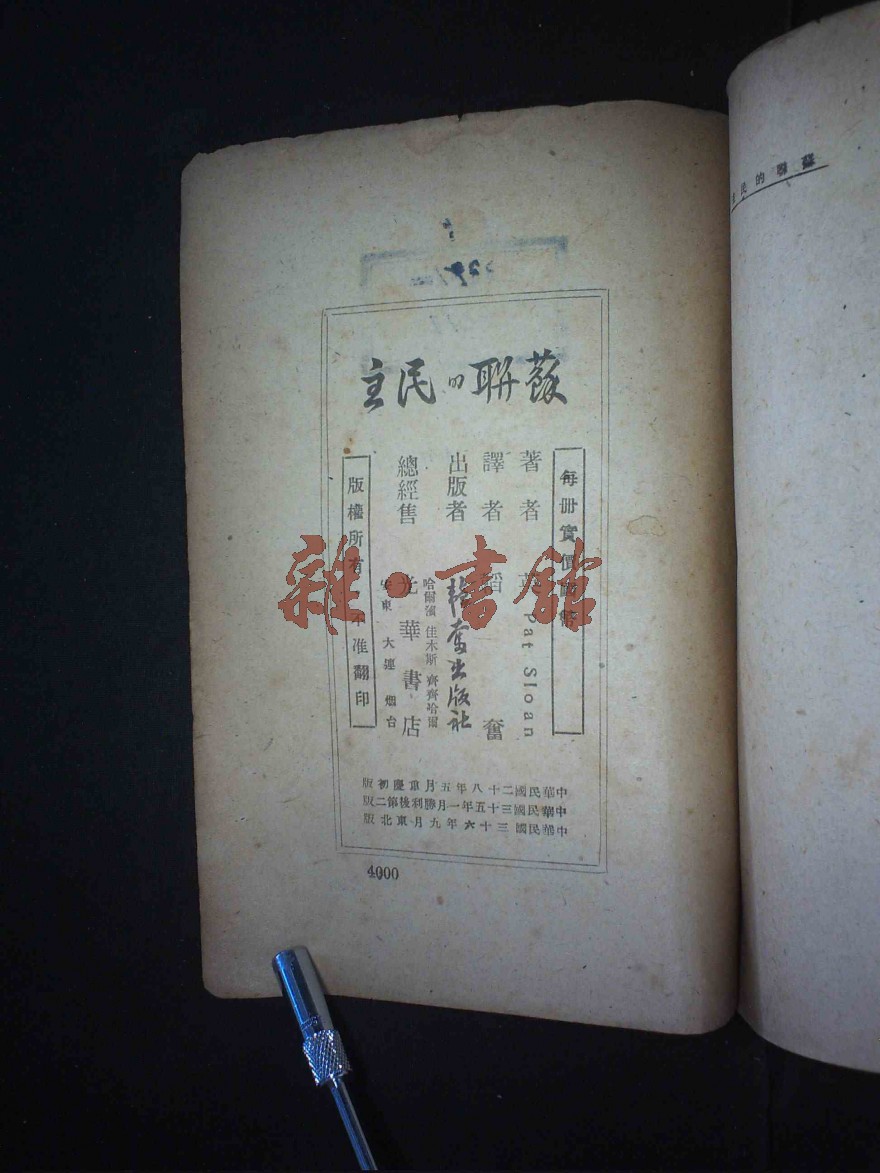 蘇聯的民
蘇聯的民主
每冊實價 幣
著者 英 Pat Sloan
譯者 韜奮
出版者 韜奮出版社
總經售 光華書店
哈爾濱 佳木斯 齊齊哈爾
安東 大連 烟台
版權所有 不准翻印
中華民國二十八年五月重慶初版
中華民國三十五年一月勝利後第二版
中華民國三十六年九月東北版
4000
雜·書館